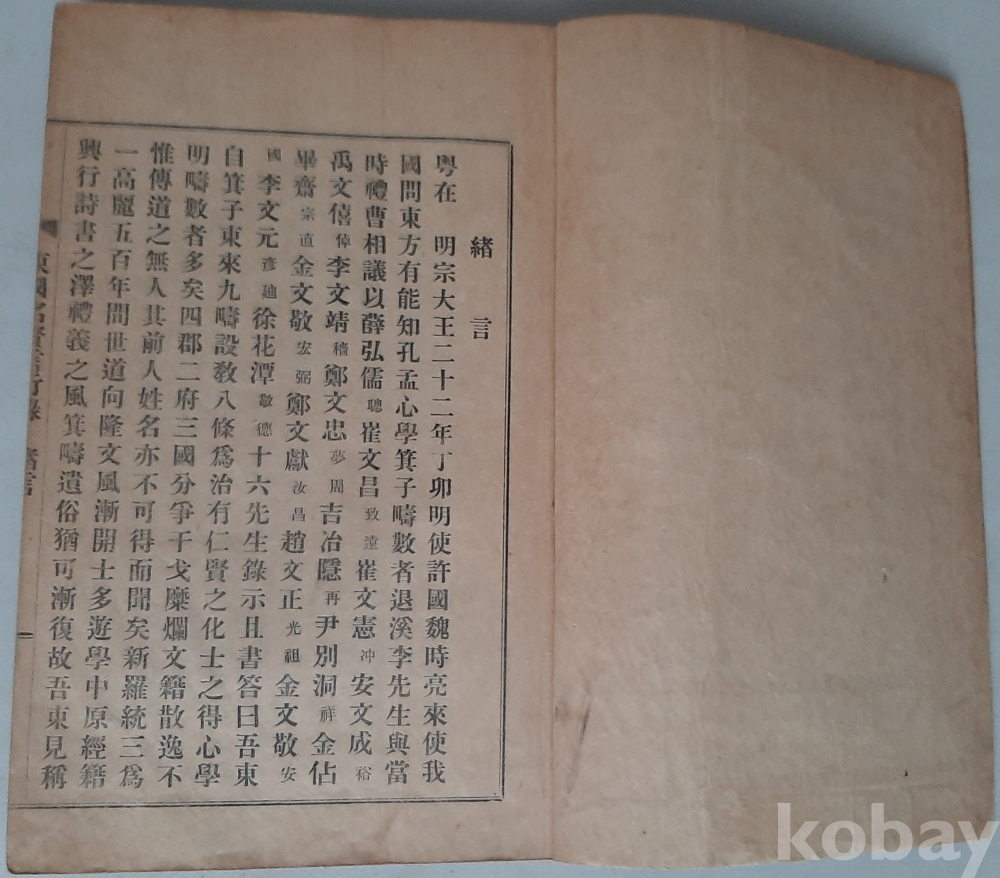 緖言
粤在 明宗大王二十二年丁卯明使許國魏時亮來使我
國問東方有能知孔孟心學箕子疇數者退溪李先生與當
時禮曹相議以薛弘儒聰崔文昌致遠崔文憲冲安文成裕
禹文僖倬李文靖穡鄭文忠夢周吉冶隱再尹別洞祥金佔
畢齋宗直金文敬宏弼鄭文獻汝昌趙文正光祖金文敬安
國李文元彦迪徐花潭敬德十六先生錄示且書答曰吾東
自箕子東來九疇設敎八條爲治有仁賢之化士之得心學
明疇數者多矣四郡二府三國分爭干戈糜爛文籍散逸不
惟傳道之無人其前人姓名亦不可得而聞矣新羅統三爲
一高麗五百年間世道向隆文風漸開士多遊學中原經籍
興行詩書之澤禮義之風箕疇遺俗猶可漸復故吾東見稱
東國名賢言行錄 緖言
一
kobay